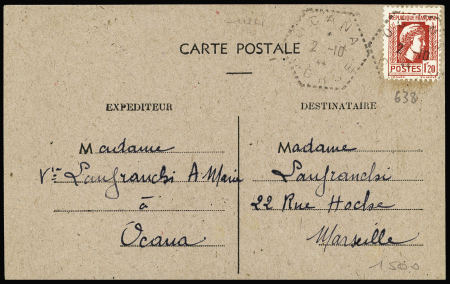 OCANA
2 -10
44
RÉPUBLIQUE FRANÇAISE
POSTES 1F20
638
CARTE POSTALE
EXPÉDITEUR
Madame
Vve Lanfranchi A Marie
à
Ocana
DESTINATAIRE
Madame
Lanfranchi
22 Rue Hoche
Marseille
1500